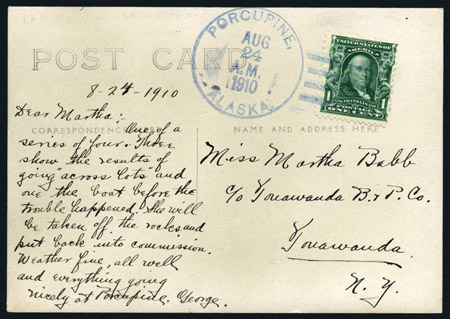 POST CARD
PORCUPINE,
AUG
24
A.M.
1910
ALASKA.
UNITED STATES OF AMERICA
1
ONE CENT
8-24-1910
Dear Martha;
CORRESPONDENCE
NAME AND ADDRESS HERE
One of a
series of four. Three
show the results of
"going across lots" and
one the boat before the
trouble happened. She will
be taken off the rocks and
put back into commission.
Weather fine, all well
and everything going
nicely at Porcupine. George.
Miss Martha Babb
c/o Tonawanda B. & P. Co.
Tonawanda.
N. Y.